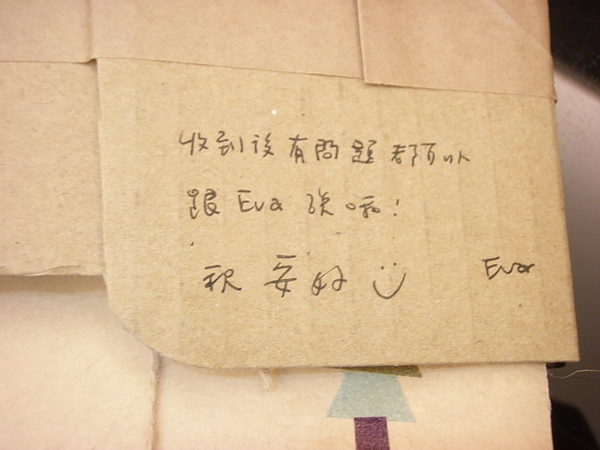 收到後有問題都可以
跟 Eva 說哦!
祝 安好 Eva